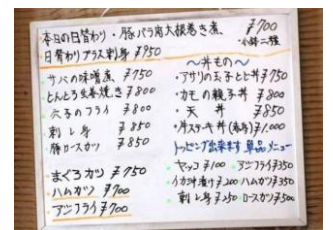 本日の日替わり・豚バラ肉大根巻き煮 ¥700
・小鉢二種
日替わりプラス刺身 ¥950
・サバの味噌煮 ¥750
・とんとろ生姜焼き ¥800
・穴子のフライ ¥800
・刺し身 ¥850
・豚ロースカツ ¥850
・まぐろカツ ¥750
・ハムカツ ¥700
・アジフライ ¥700
〜丼もの〜
・アサリの玉子とじ丼 ¥750
・カモの親子丼 ¥800
・天丼 ¥850
・牛ステーキ丼 ¥1,000
トッピング出来ます 単品メニュー
・ヤッコ ¥100 ・アジフライ ¥350
・イカ沖漬け ¥200 ・ハムカツ ¥350
・刺し身 ¥250 ・ロースカツ ¥500